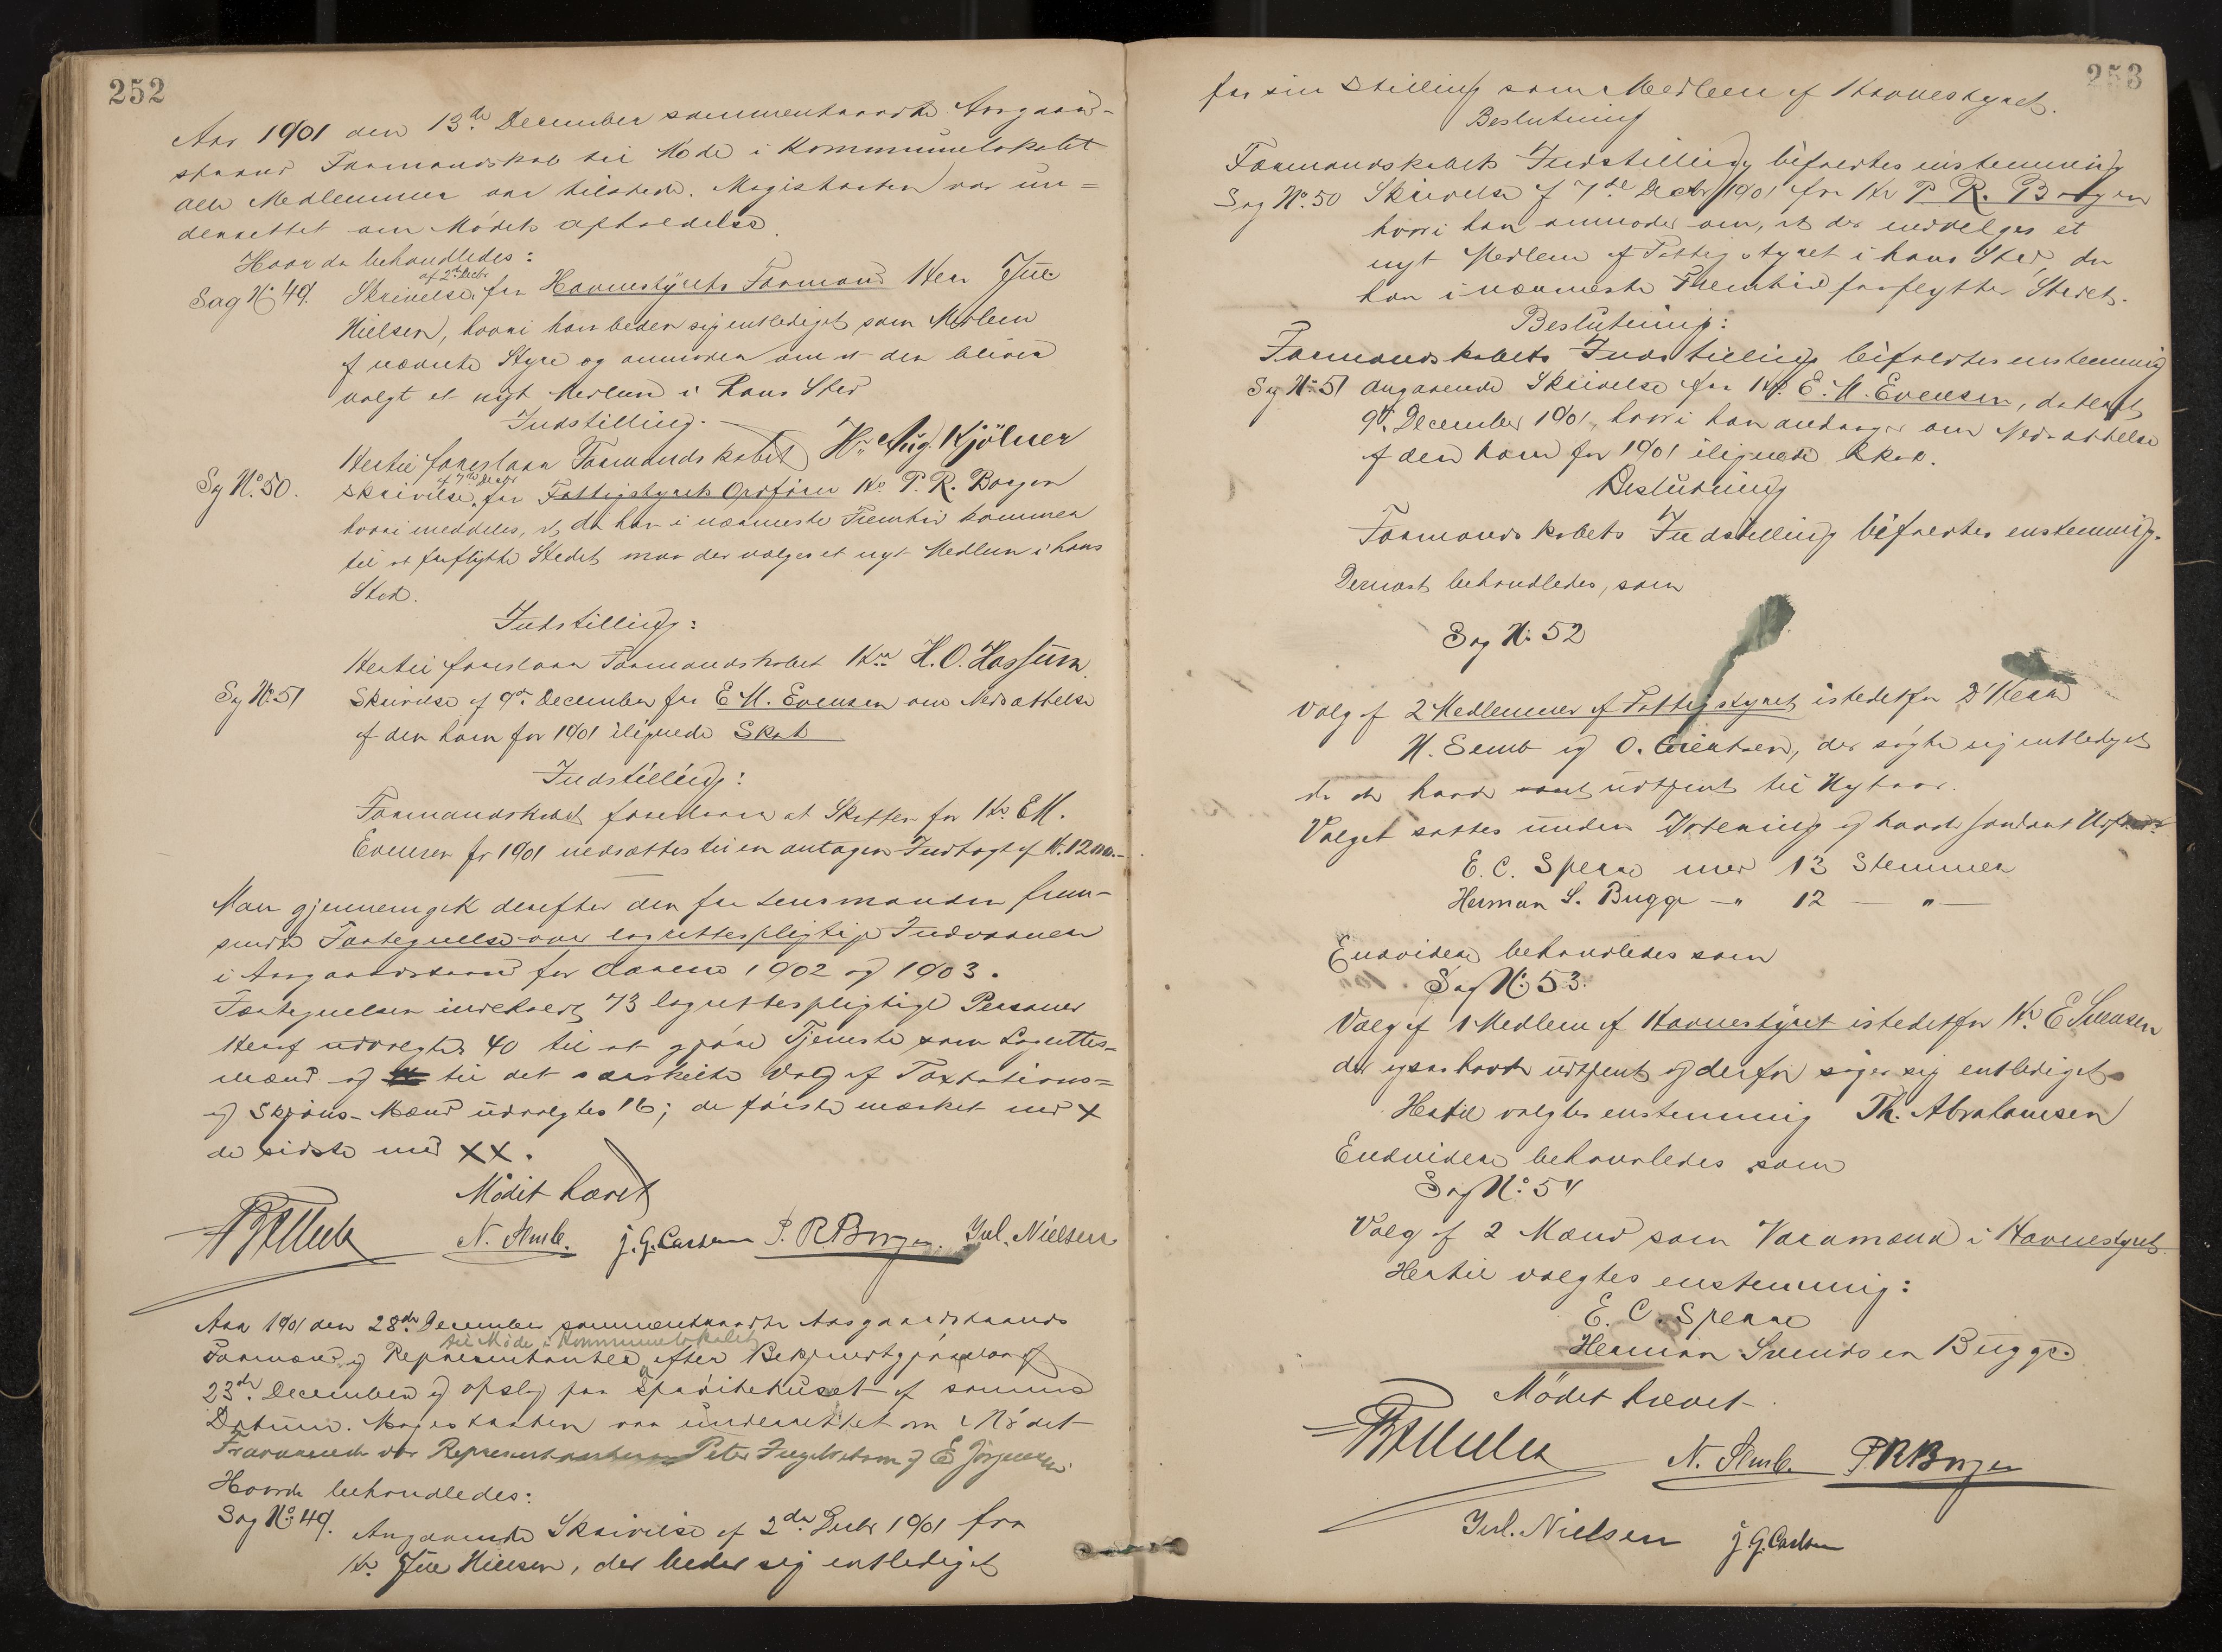 252
Aar 1901 den 13de December sammentraadte Aasgaard-
strands Formandskab til Møde i Kommunelokalet
alle Medlemmer var tilstede. Magistraten var un=
derrettet om Mødets afholdelse.
Hvor da behandledes:
af 2den Decbr
Sag No 49. Skrivelse fra Havnestyrets Formand Herr Jul.
Nielsen, hvori han beder sig entlediget som Medlem
af nævnte Styre og anmoder om at der bliver
valgt et nyt Medlem i hans Sted
Indstilling.
Hertil foreslaar Formandskabet Hr. Aug. Kjölner
af 7de Decbr
Sag No. 50. Skrivelse fra Fattigstyrets Ordfører Hr P. R. Borgen
hvori meddeles, at da han i nærmeste Fremtid kommer
til at fraflytte Stedet maa der vælges et nyt Medlem i hans
Sted.
Indstilling:
Hertil foreslaar Formandskabet Hrr H. O. Hassum.
Sag No. 51 Skrivelse af 9de December fra E M. Evensen om Nedsættelse
af den ham for 1901 ilignede Skat
Indstilling:
Formandskabet foreslaar at Skatten for Hr. E M.
Evensen for 1901 nedsættes til en antagen Indtægt af Kr. 1200.-
Man gjennemgik derefter den fra Lensmanden frem-
sendte Fortegnelse over lagrettespligtige Indvaanere
i Aasgaardstrand for Aarene 1902 og 1903.
Fortegnelsen indeholdt 73 lagrettespligtige Personer
Heraf udvalgtes 40 til at gjøre Tjeneste som Lagrettes-
mænd og til det særskilte Valg af Taxtations=
og Skjøns-Mænd udvalgtes 16; de første mærket med X
de sidste med XX.
Mødet hævet
N. Semb. J. G. Carlsen P. R. Borgen. Jul. Nielsen
Aar 1901 den 28de December sammentraadte Aasgaardstrands
til Møde i Kommunelokalet
Formænd og Repræsentanter efter Bekjendtgjørelse af
23de December og opslag paa Sprøitehuset af samme
Datum. Magistraten var underrettet om Mødet
Fraværende var Repræsentanterne Peter Ingebretsen og E Jørgensen.
Hvorda behandledes:
Sag No. 49. Angaaende Skrivelse af 2den Decbr 1901 fra
Hr. Jul Nielsen, der beder sig entlediget
253
fra sin Stilling som Medlem af Havnestyret.
Beslutning
Formandskabets Indstilling bifaldtes enstemmig
Sag No. 50 Skrivelse af 7de Decbr 1901 fra Hr P. R. Borgen
hvori han anmoder om, at der udvælges et
nyt Medlem af Fattigstyret i hans Sted, da
han i nærmeste Fremtid fraflytter Stedet.
Beslutning:
Formandskabets Indstilling bifaldtes enstemmig
Sag No. 51 Angaaende Skrivelse fra Hr. E. M. Evensen, dateret
9de December 1901, hvori han andrager om Nedsættelse
af den ham for 1901 ilignede Skat.
Beslutning
Formandskabets Indstilling bifaldtes enstemmig.
Dernæst behandledes, som
Sag No. 52
Valg af 2 Medlemmer af Fattigstyret istedetfor D'Herr
N. Semb og O. , der søgte sig entlediget
da de havde udtjent til Nytaar.
Valget sattes under Votering og havde saadant Udfald
E. C. Sperre med 13 Stemmer
Herman S. Bugge - " 12 - " -
Endvidere behandledes som
Sag No. 53.
Valg af 1 Medlem af Havnestyret istedetfor Hr. E
der ogsaa havde udtjent og derfor søger sig entlediget
Hertil valgtes enstemmig Th. Abrahamsen
Endvidere behandledes som
Sag No. 54
Valg af 2 Mænd som Varamænd i Havnestyret
Hertil valgtes enstemmig:
E. C. Sperre
Herman Svendsen Bugge.
Mødet hævet
N. Semb. P R Borgen
Jul. Nielsen J. G. Carlsen